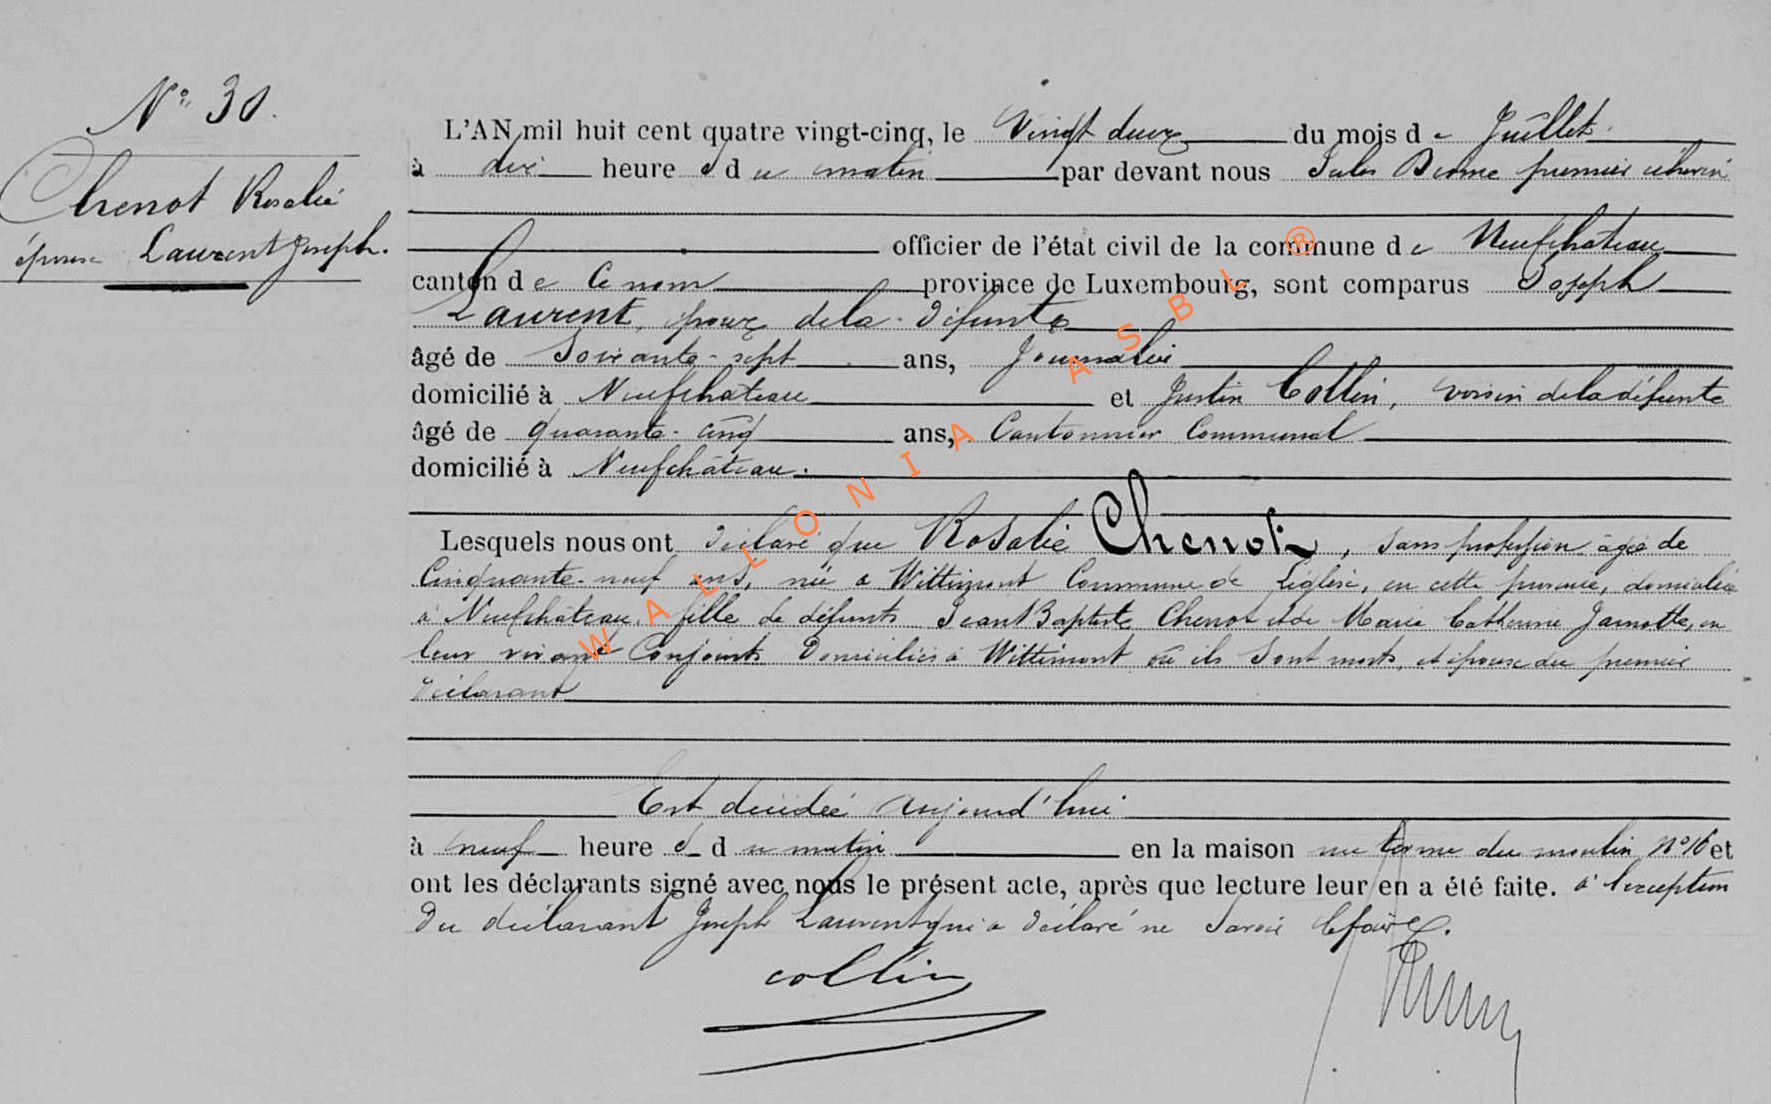 N° 30.
Chenot Rosalie
épouse Laurent Joseph.
L'AN mil huit cent quatre vingt-cinq, le vingt deux du mois de Juillet
à dix heures du matin par devant nous Jules premier échevin
officier de l'état civil de la commune de Neufchateau
canton de Ce nom province de Luxembourg, sont comparus Joseph
Laurent, époux de la défunte
âgé de Soixante-sept ans, Journalier
domicilié à Neufchateau et Justin Collin, voisin de la défunte
âgé de quarante-cinq ans, Cantonnier Communal
domicilié à Neufchâteau.
Lesquels nous ont déclaré que Rosalie Chenot, sans profession âgée de
Cinquante-neuf ans, née à Wittimont Commune de Léglise, en cette province, domiciliée
à Neufchâteau, fille de défunts Jean Baptiste Chenot et de Marie Catherine Jamotte, en
leur vivant Conjoints Domiciliés à Wittimont où ils Sont morts, et épouse du premier
déclarant
Est décédée aujourd'hui
à neuf heures du matin en la maison rue terme du moulin N°16 et
ont les déclarants signé avec nous le présent acte, après que lecture leur en a été faite. à l'exception
Du déclarant Joseph Laurent qui a déclaré ne Savoir le faire.
collin
WALLONIA ASBL ®